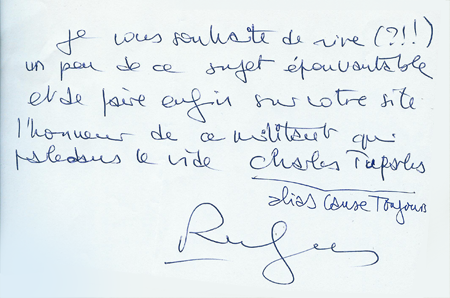 Je vous souhaite de rire (?!!)
un peu de ce sujet épouvantable
et de faire enfin sur votre site
l'honneur de ce militant qui
parle dans le vide Charles Tapioles
alias Cause Toujours